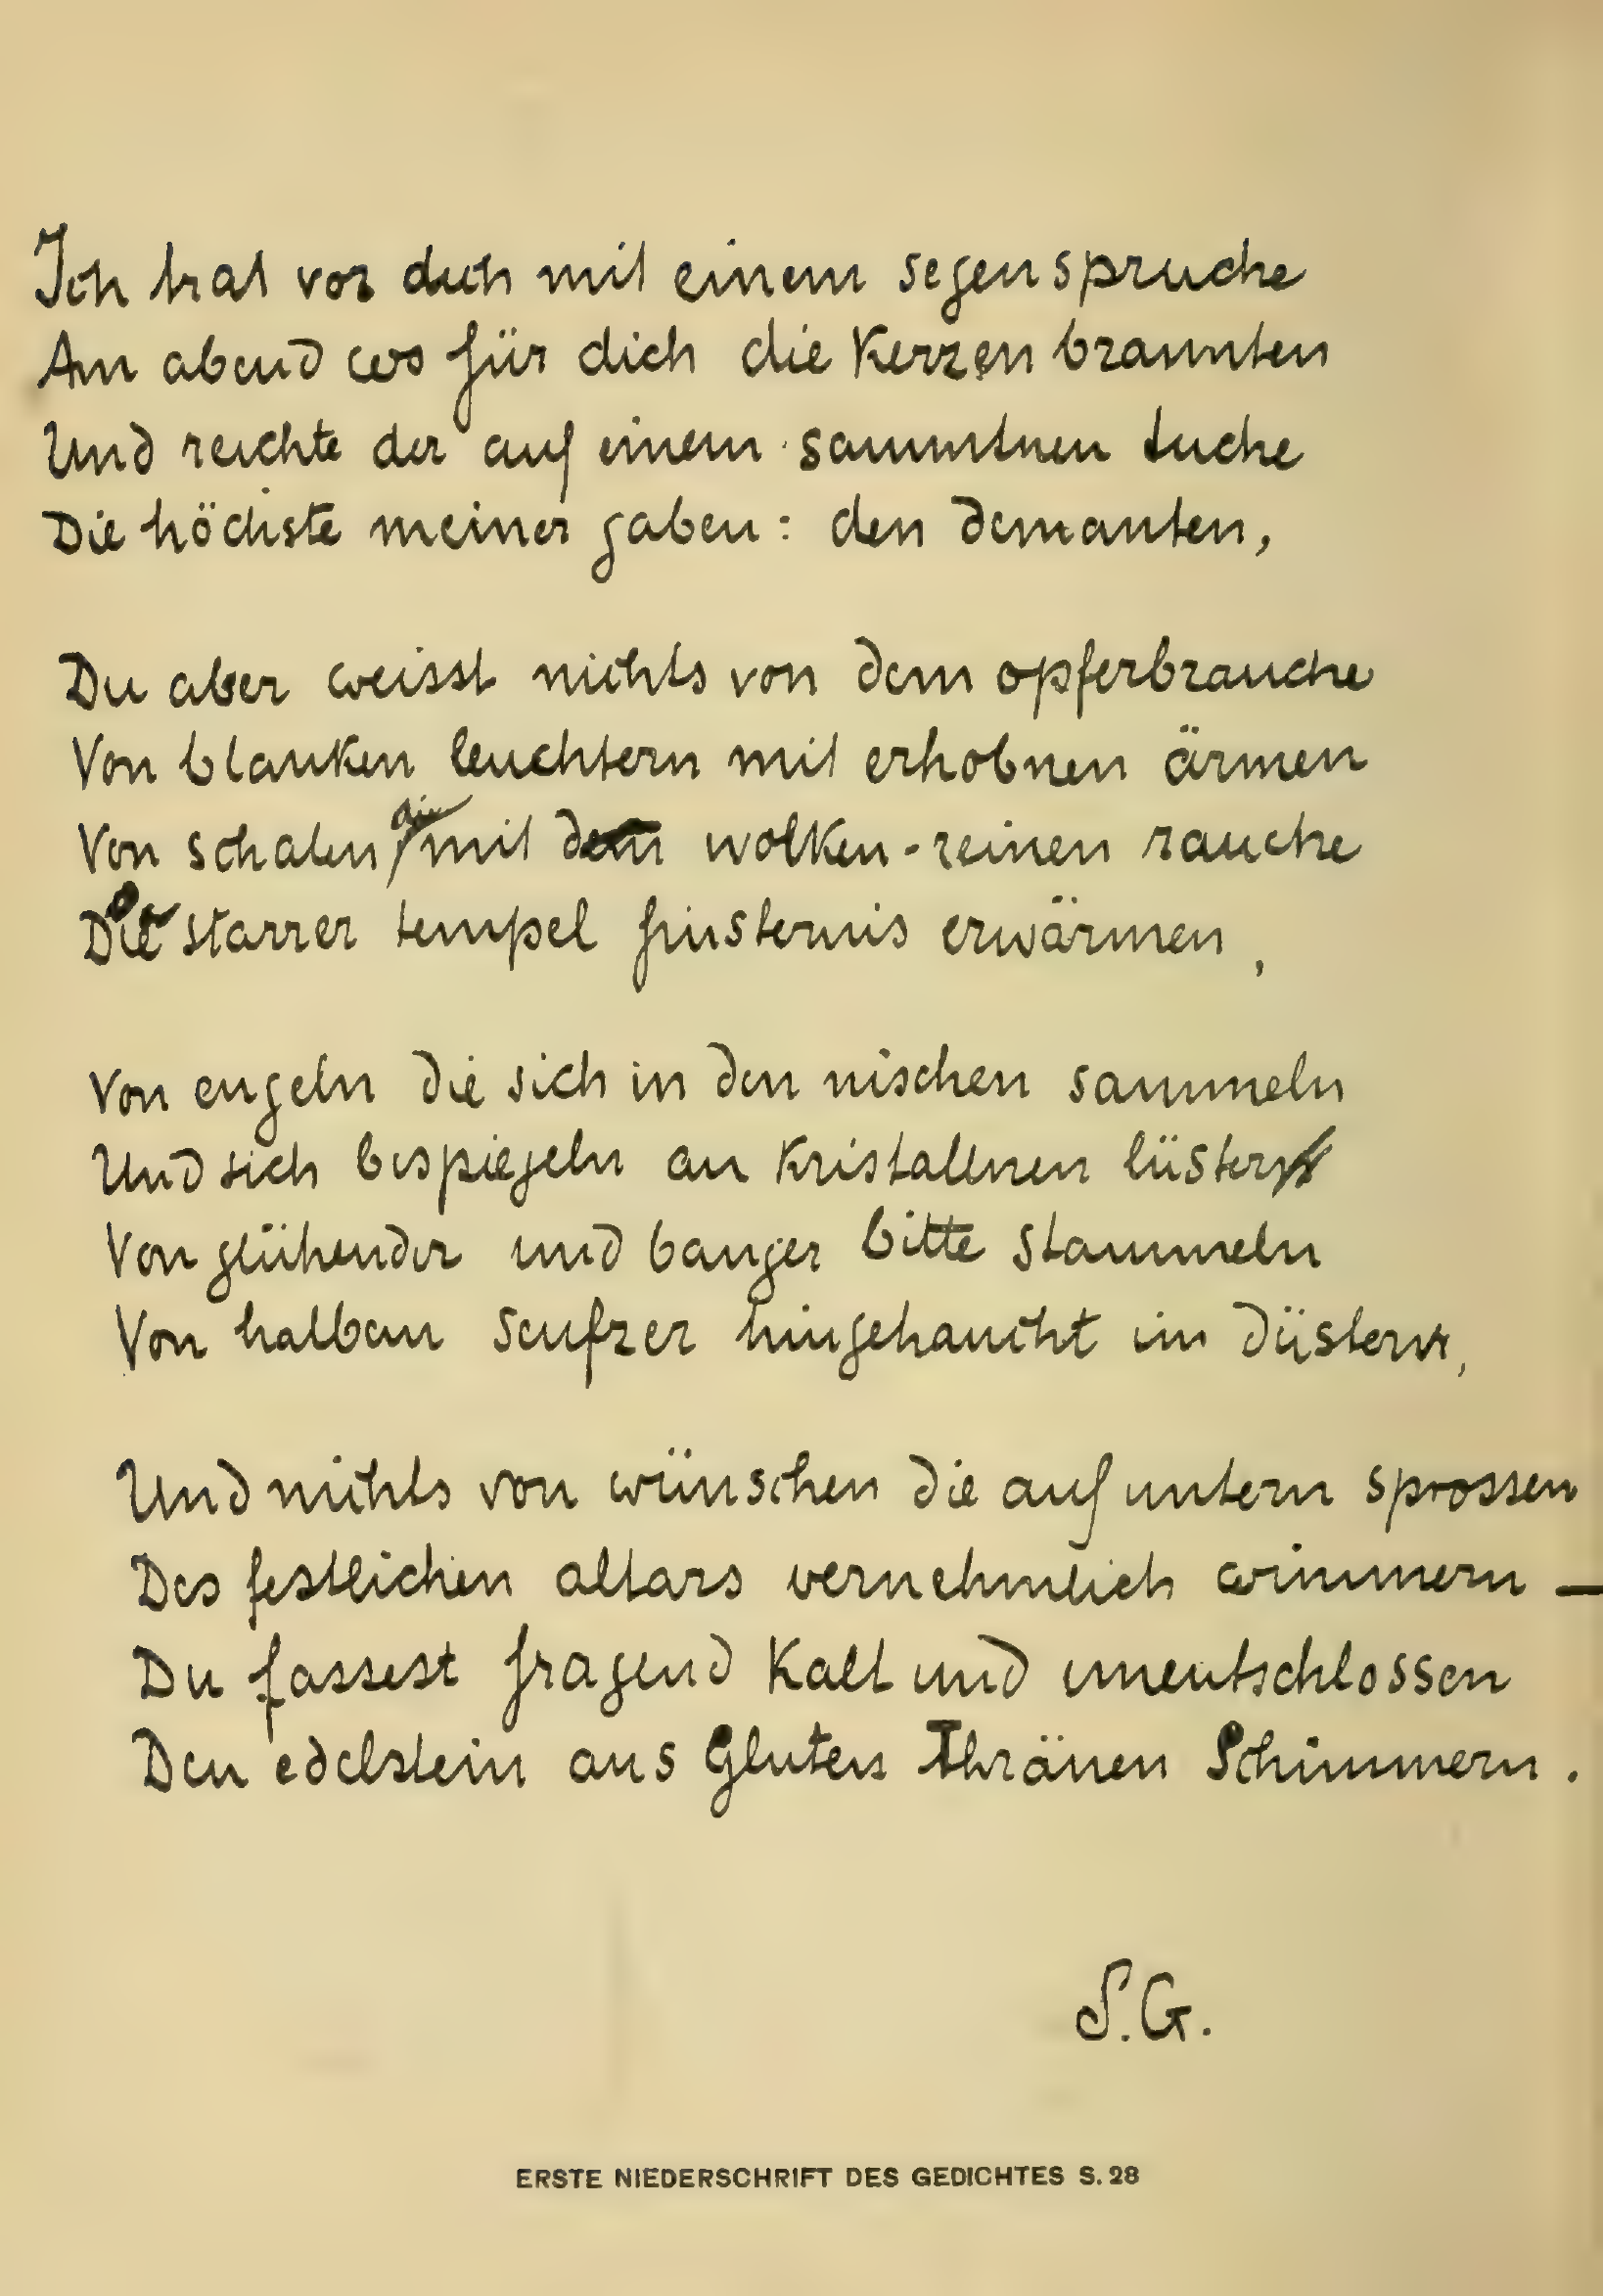 Ich trat vor dich mit einem segenspruche
Am abend wo für dich die Kerzen brannten
Und reichte dir auf einem sammtnen tuche
Die höchste meiner gaben: den demanten,
Du aber weisst nichts von dem opferbrauche
Von blanken leuchtern mit erhobnen ärmen
Von schalen die mit wolken-reinen rauche
Die starrer tempel finsternis erwärmen,
Von engeln die sich in den nischen sammeln
Und sich bespiegeln an Kristallnen lüster
Von glühender und banger bitte stammeln
Von halben seufzer hingehaucht im düstern,
Und nichts von wünschen die auf untern sprossen
Des festlichen altars vernehmlich wimmern —
Du fassest fragend Kalt und unentschlossen
Den edelstein aus Gluten Thränen Schimmern.
S.G.
ERSTE NIEDERSCHRIFT DES GEDICHTES S. 28